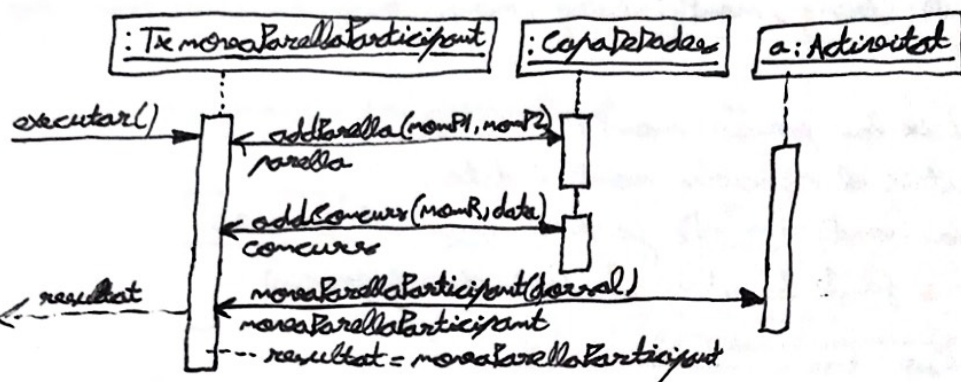 : TxnovaParellaParticipant
: CapaDeDades
a: Activitat
executar()
addParella(nomP1, nomP2)
parella
addConcurs(nomR, data)
concurs
resultat
novaParellaParticipant(dorsal)
novaParellaParticipant
resultat = novaParellaParticipant